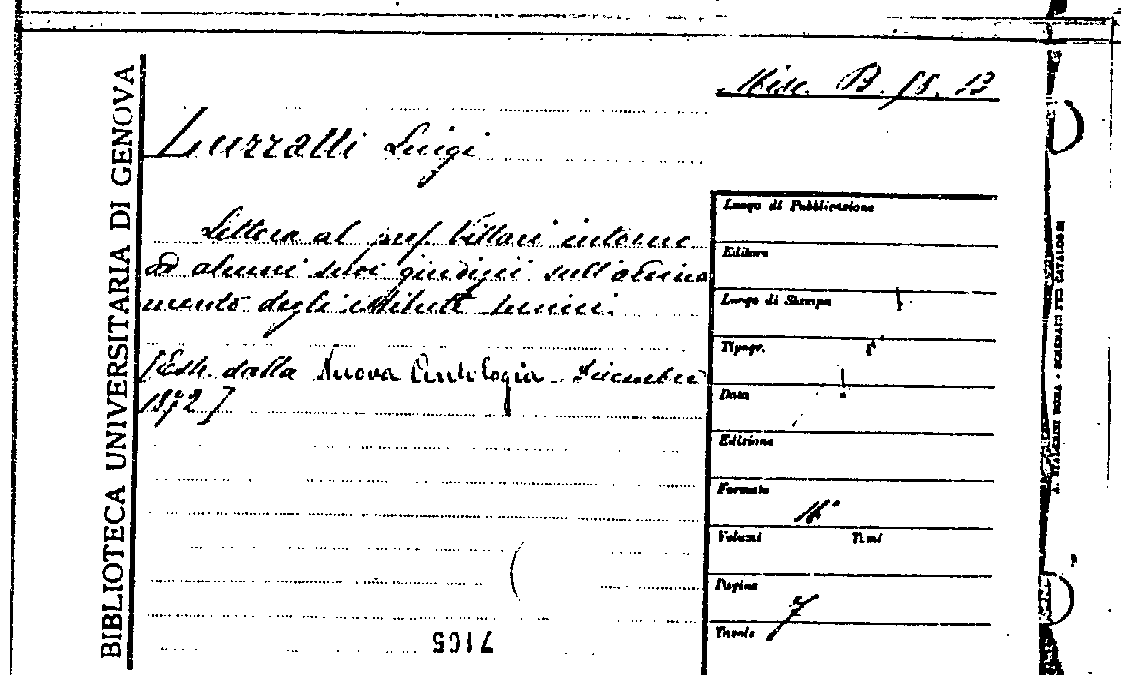 BIBLIOTECA UNIVERSITARIA DI GENOVA
Misc. B. 18. 13
Luzzatti Luigi
Lettera al prof. Villari intorno
ad alcuni suoi giudizii sull'ordina
mento degli istituti tecnici.
[Estr. dalla Nuova Antologia. Dicembre
1872]
7165
Luogo di Pubblicazione
Editore
Luogo di Stampa
Tipogr.
Data
Edizione
Formato
16°
Volumi
Pagine
7
Tavole